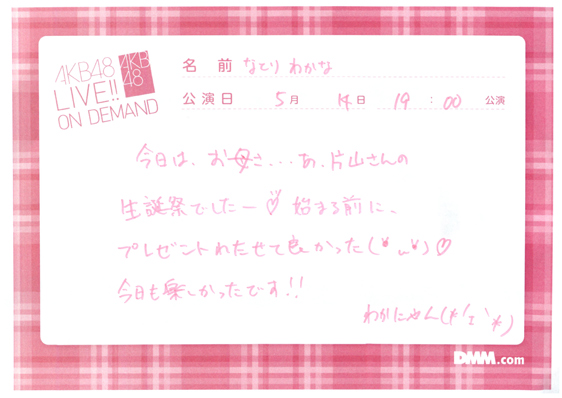 AKB48
LIVE!!
ON DEMAND
AKB
48
名前 なとり わかな
公演日 5月 14日 19:00 公演
今日は、お母さ...あ、片山さんの
生誕祭でしたー♡ 始まる前に、
プレゼントわたせて良かった(*ᴗ*)♡
今日も楽しかったです!!
わかにゃん(*'ェ`*)
DMM.com